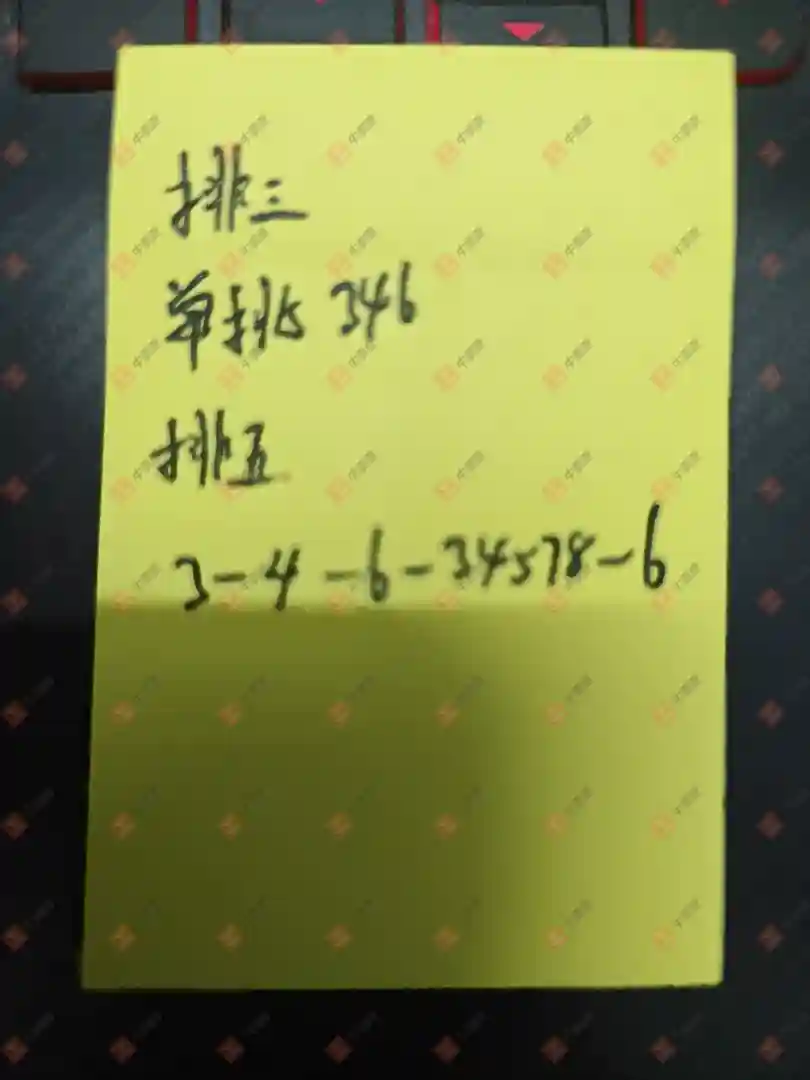 排三
单挑 346
排五
3-4-6-34578-6